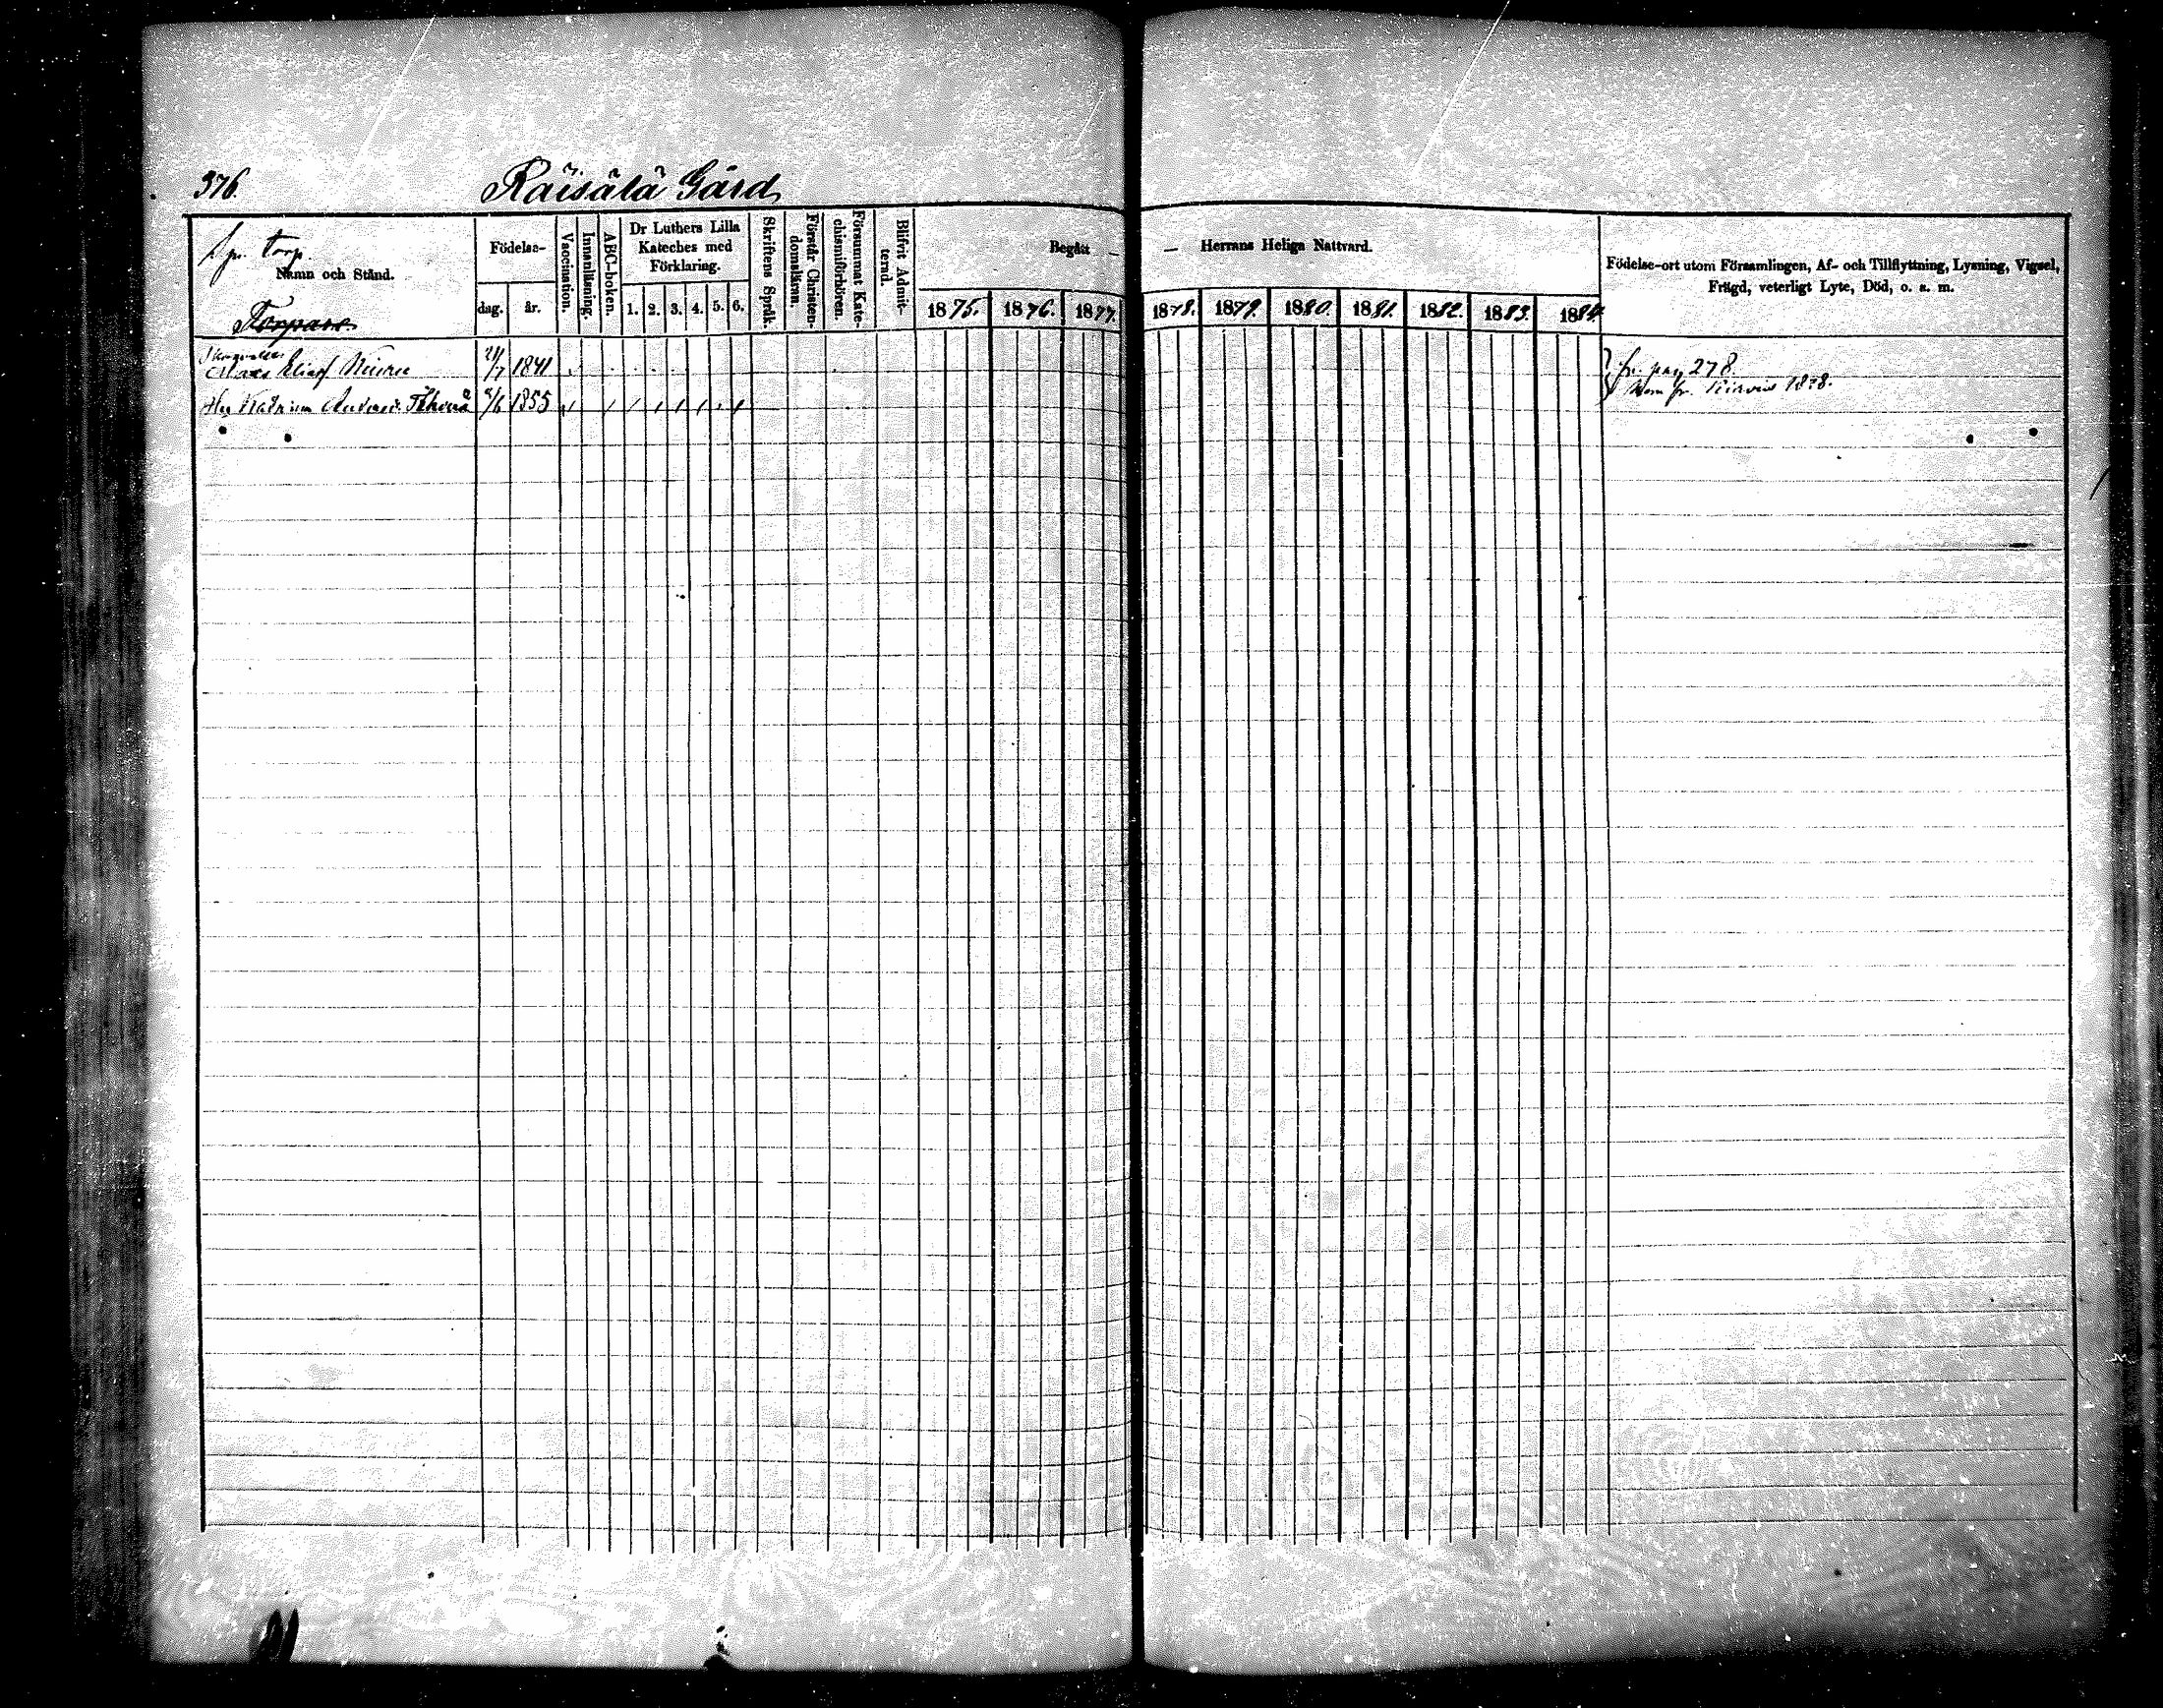 376. Räisälä Gård
torp.
Namn och Stånd.
Torpare
Födelse-
dag. år.
Vaccination.
Innanläsning.
ABC-boken.
Dr Luthers Lilla
Kateches med
Förklaring.
1. 2. 3. 4. 5. 6.
Skriftens Språk.
Förstår Christen-
domsläran.
Försummat Kate-
chismiförhören.
Blifvit Admit-
terad.
Begått — — Herrans Heliga Nattvard.
1875. 1876. 1877. 1878. 1879. 1880. 1881. 1882. 1883. 1884.
Födelse-ort utom Församlingen, Af- och Tillflyttning, Lysning, Vigsel,
Frägd, veterligt Lyte, Död, o. s. m.
Elias 1841 fr. pag 278.
Hu Katarina 1855 1878.